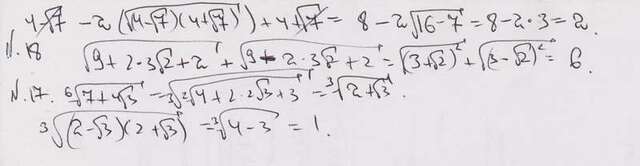 4-√7 - 2(√(4-√7)(4+√7)) + 4+√7 = 8 - 2√16-7 = 8-2·3 = 2.
N.18 √9+2·3√2+2 + √9-2·3√2+2 = √(3+√2)² + √(3-√2)² = 6.
N.17. ⁶√7+4√3 = ³√²√4+2·2√3+3 = ³√2+√3.
³√(2-√3)(2+√3) = ³√4-3 = 1.